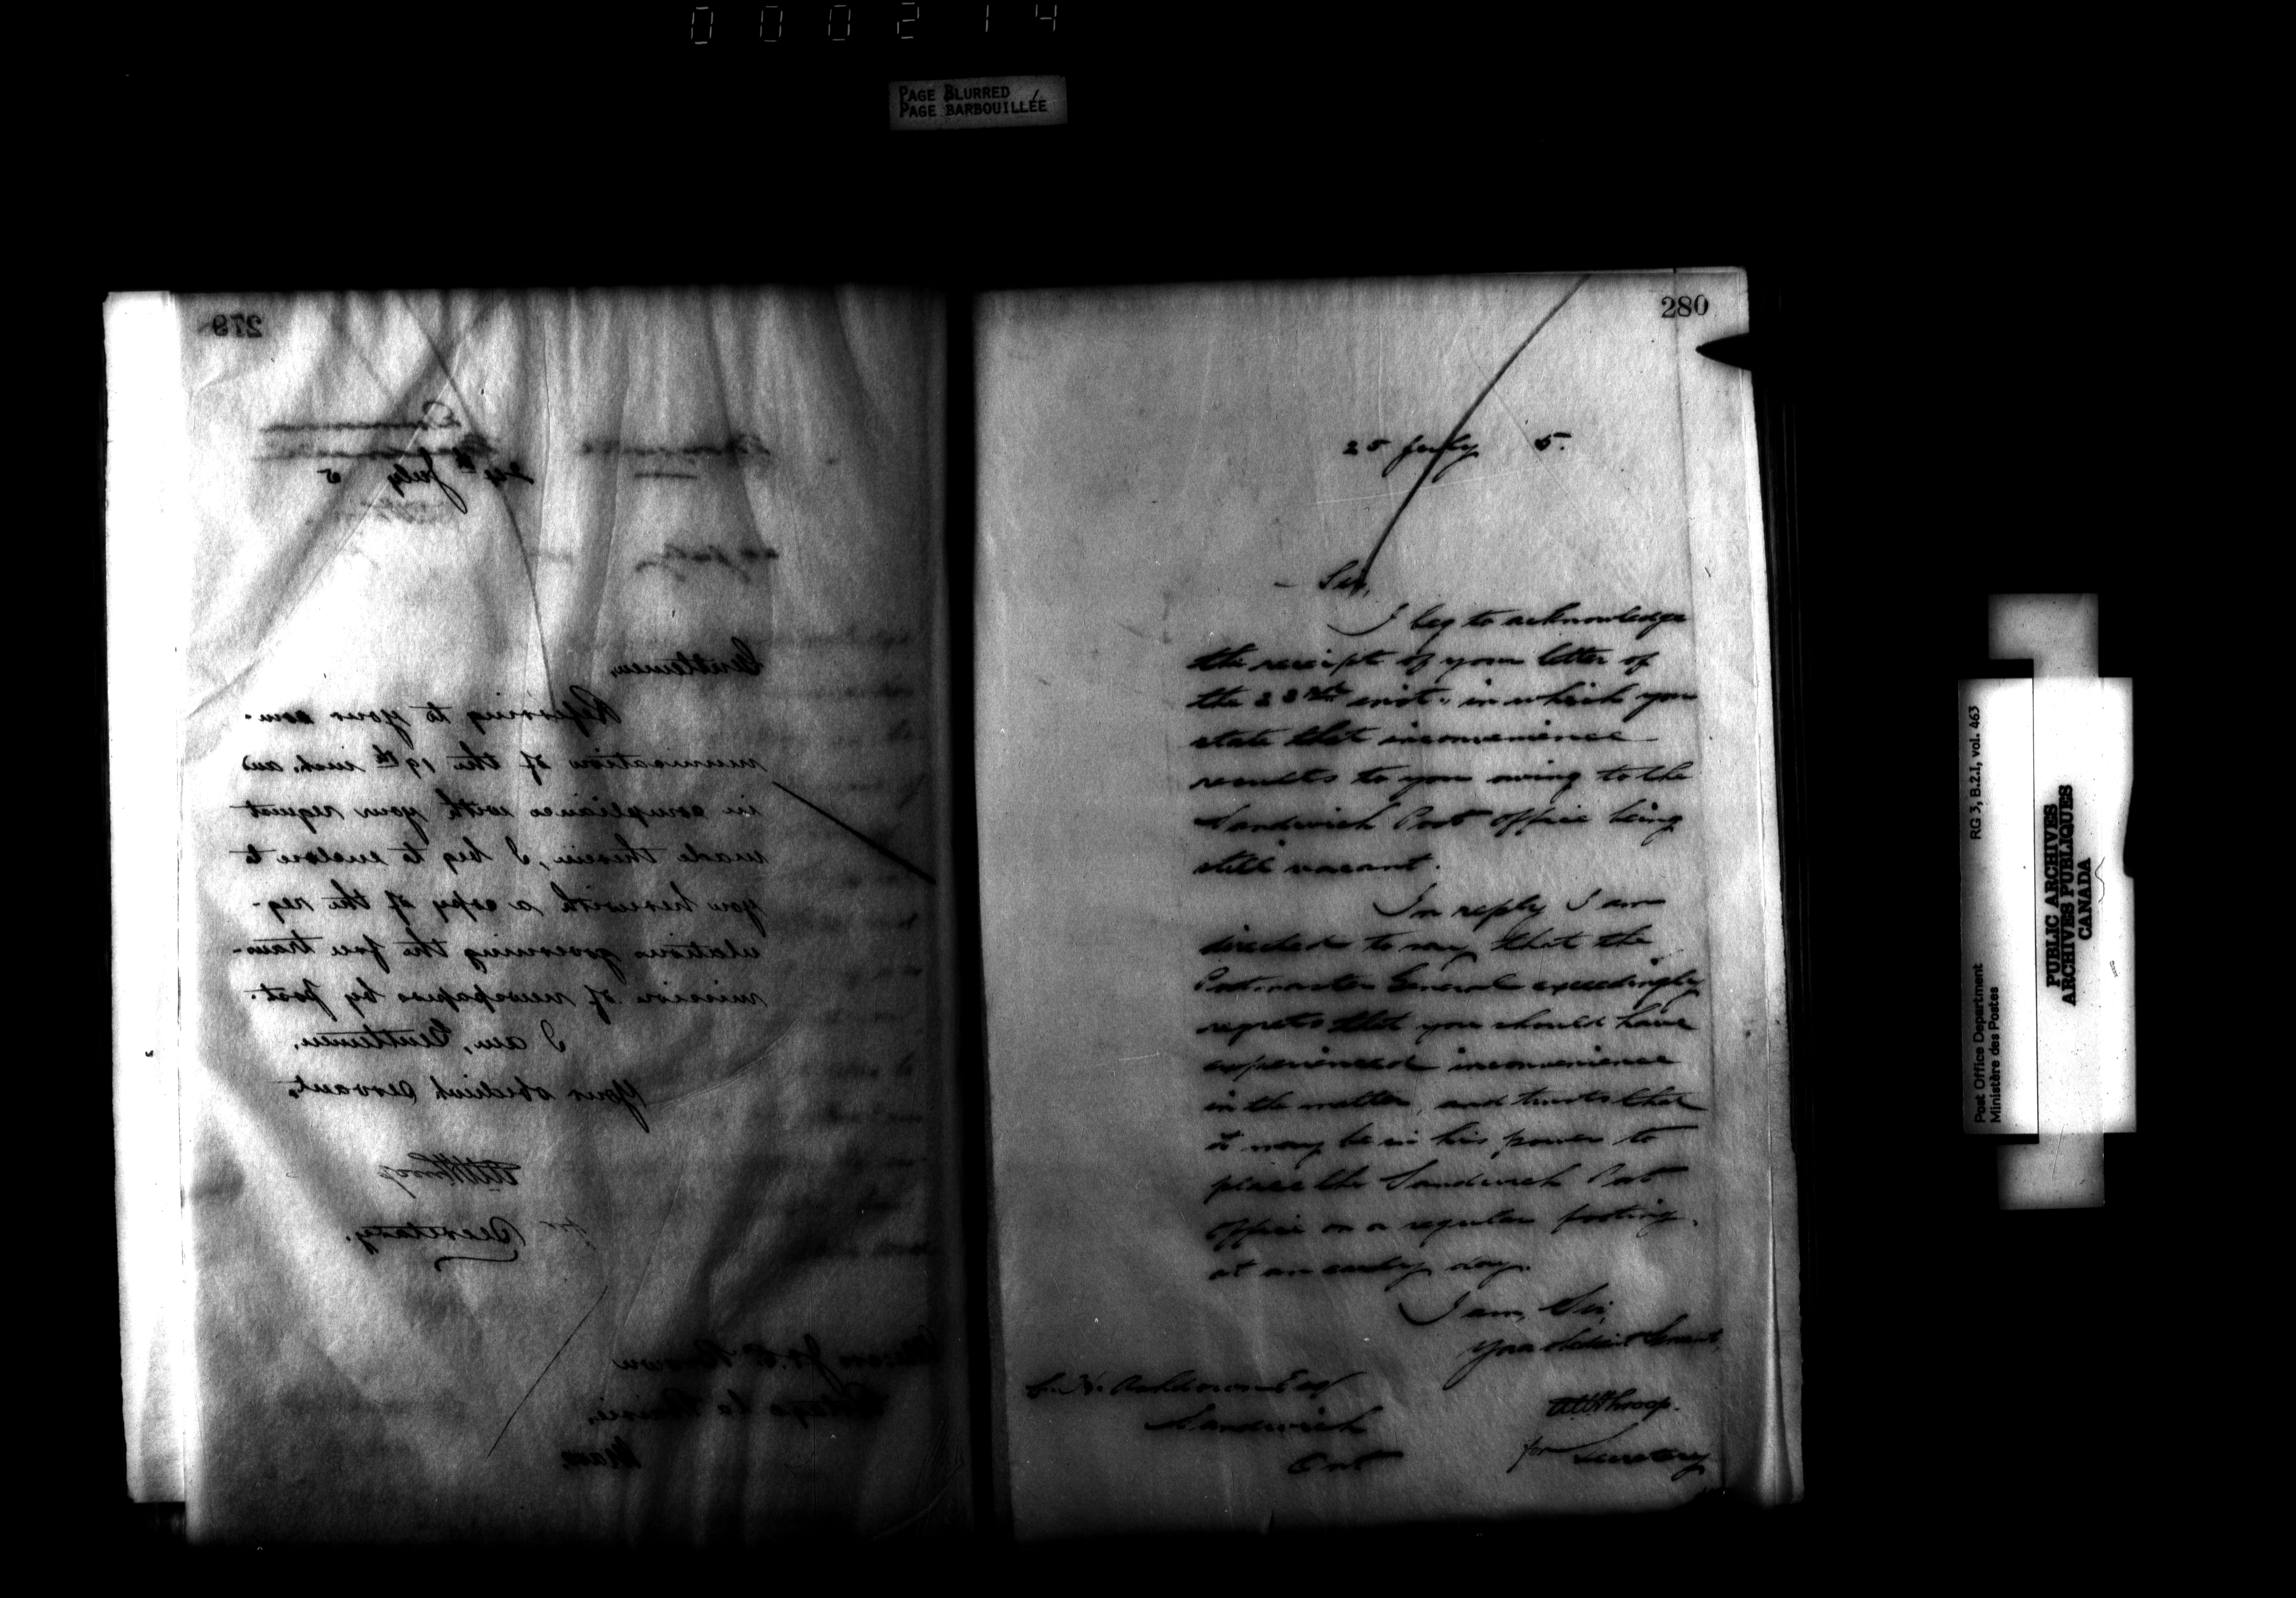 000214
PAGE BLURRED
PAGE BARBOUILLÉE
279
24th July 5
Gentlemen,
Referring to your com-
munication of the 19th inst. and
in compliance with your request
made therein, I beg to enclose to
you herewith a copy of the reg-
ulations governing the free trans-
mission of newspapers by post.
I am, Gentlemen,
Your obedient Servant,
WWThroop
for Secretary.
Brown
Portage la Prairie,
Man.
280
25 July 5.
Sir,
I beg to acknowledge
the receipt of your letter of
the 23rd inst., in which you
state that inconvenience
results to you owing to the
Sandwich Post Office being
still vacant.
In reply I am
directed to say that the
Postmaster General exceedingly
regrets that you should have
experienced inconvenience
in the matter, and trusts that
it may be in his power to
place the Sandwich Post
Office on a regular footing,
at an early day.
I am, Sir,
Your obedient Servant,
WWThroop.
for Secretary
Ashdown Esq
Sandwich
Ont
Post Office Department
Ministère des Postes
RG 3, B.2.I, vol. 463
PUBLIC ARCHIVES
ARCHIVES PUBLIQUES
CANADA